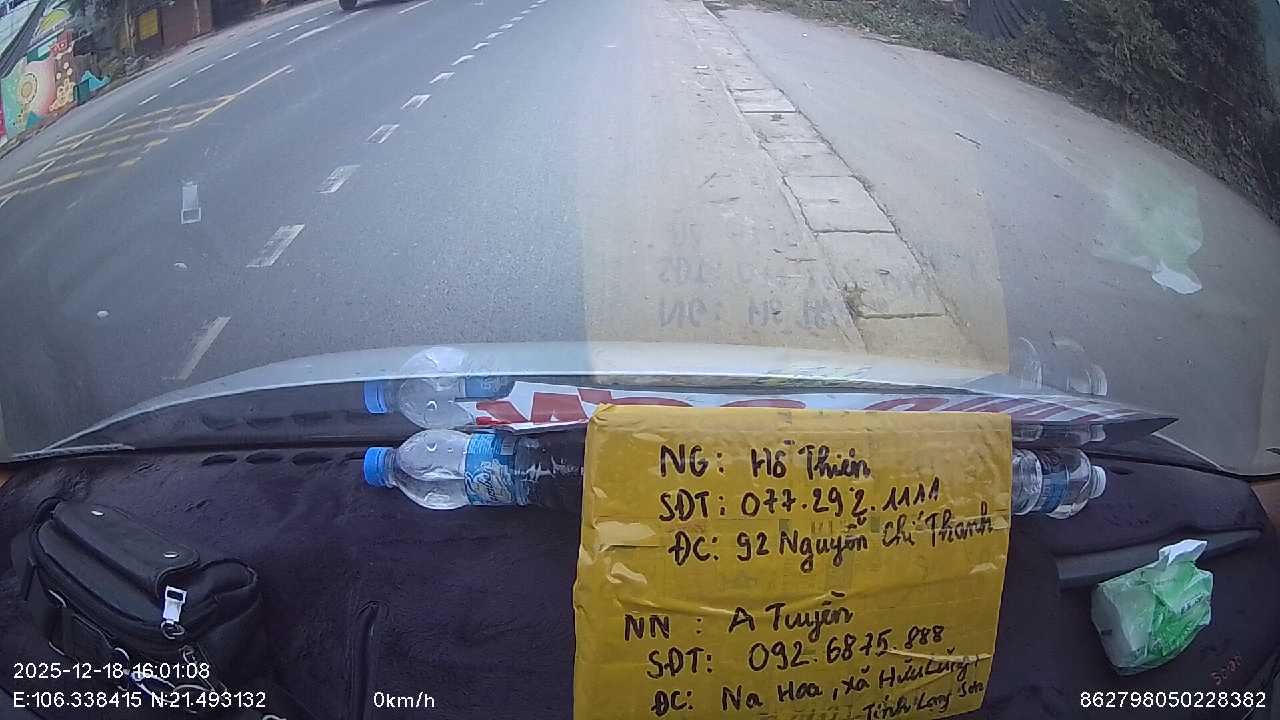 NG: Hồ Thiên
SĐT: 077.292.1111
ĐC: 92 Nguyễn Chí Thanh
NN : A Tuyền
SĐT: 092.6875.888
ĐC: Na Hoa, xã Hữu Lũng
Tỉnh Lạng Sơn
2025-12-18 16:01:08
E:106.338415 N:21.493132
0km/h
862798050228382